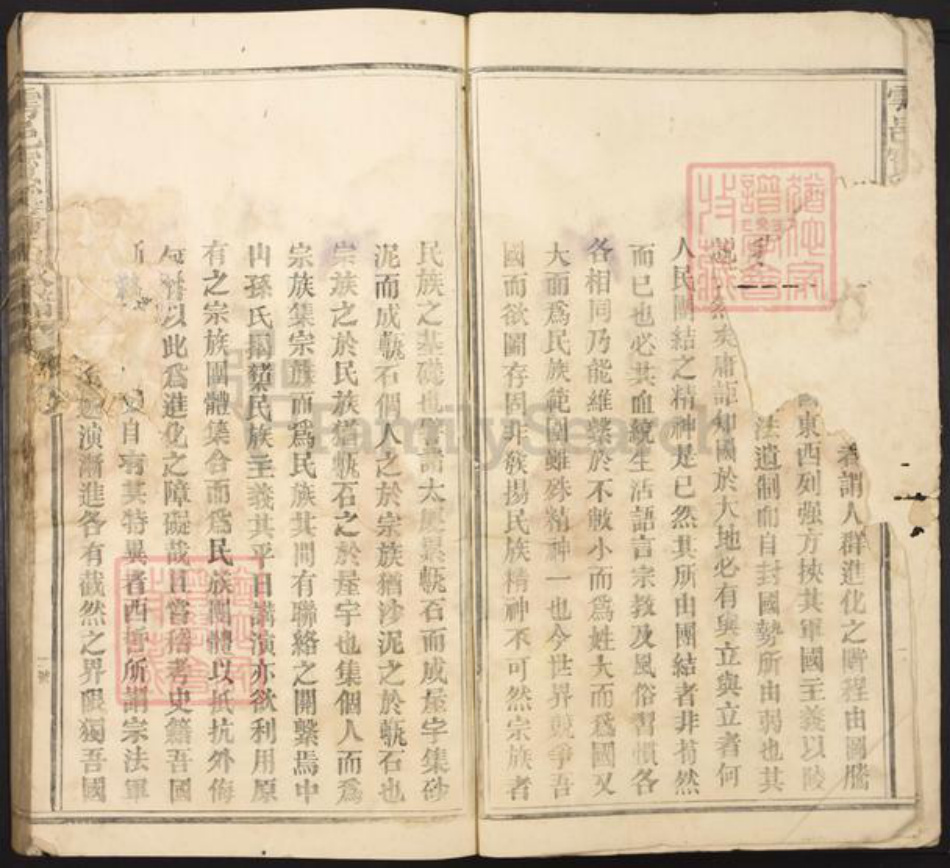 者謂人群進化之階程由圖騰
東西列强方挾其軍國主義以陵
法遺制而自封國勢所由弱也其
然矣庸詎知國於大地必有與立與立者何
人民團結之精神是已然其所由團結者非苟然
而已也必其血統生活語言宗教及風俗習慣各
各相同乃能維繫於不敝小而為姓大而為國又
大而為民族範圍雖殊精神一也今世界競爭吾
國而欲圖存固非發揚民族精神不可然宗族者
民族之基礎也 石而成屋宇集砂
泥而成甎石個人之於宗族猶沙泥之於甎石也
宗族之於民族猶甎石之於屋宇也集個人而為
宗族集宗族而為民族其間有聯絡之關繫焉中
山孫氏揭櫫民族主義其平日講演亦欲利用原
有之宗族團體集合而為民族團體以抵抗外侮
以此為進化之障礙哉且嘗稽考史籍吾國
自有其特異者西哲所謂宗法軍
演漸進各有截然之界限獨吾國
一號
FamilySearch